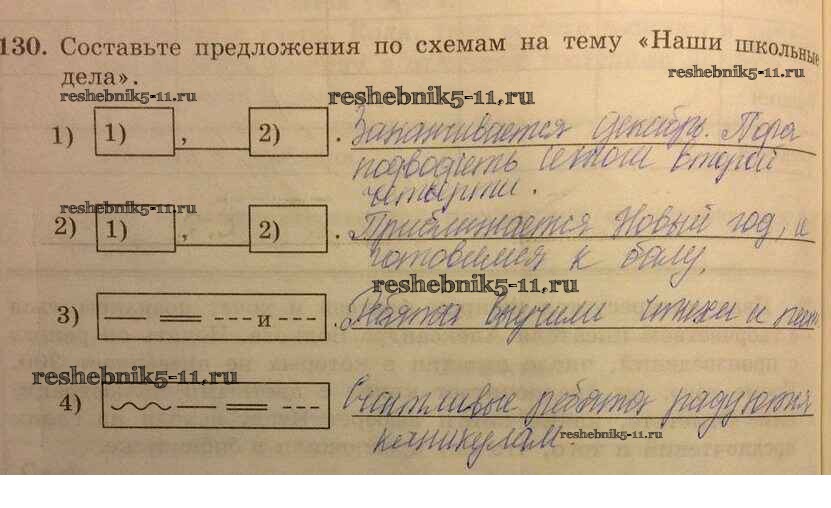 130. Составьте предложения по схемам на тему «Наши школьные
дела».
reshebnik5-11.ru
reshebnik5-11.ru
reshebnik5-11.ru
1) 1) , 2) . Заканчивается декабрь. Пора
подводить итоги второй
четверти.
reshebnik5-11.ru
2) 1) , 2) . Приближается Новый год, и
готовимся к балу.
reshebnik5-11.ru
3) и . Ребята выучили стихи и
reshebnik5-11.ru
4) Счастливые ребята радуются
каникулам.
reshebnik5-11.ru